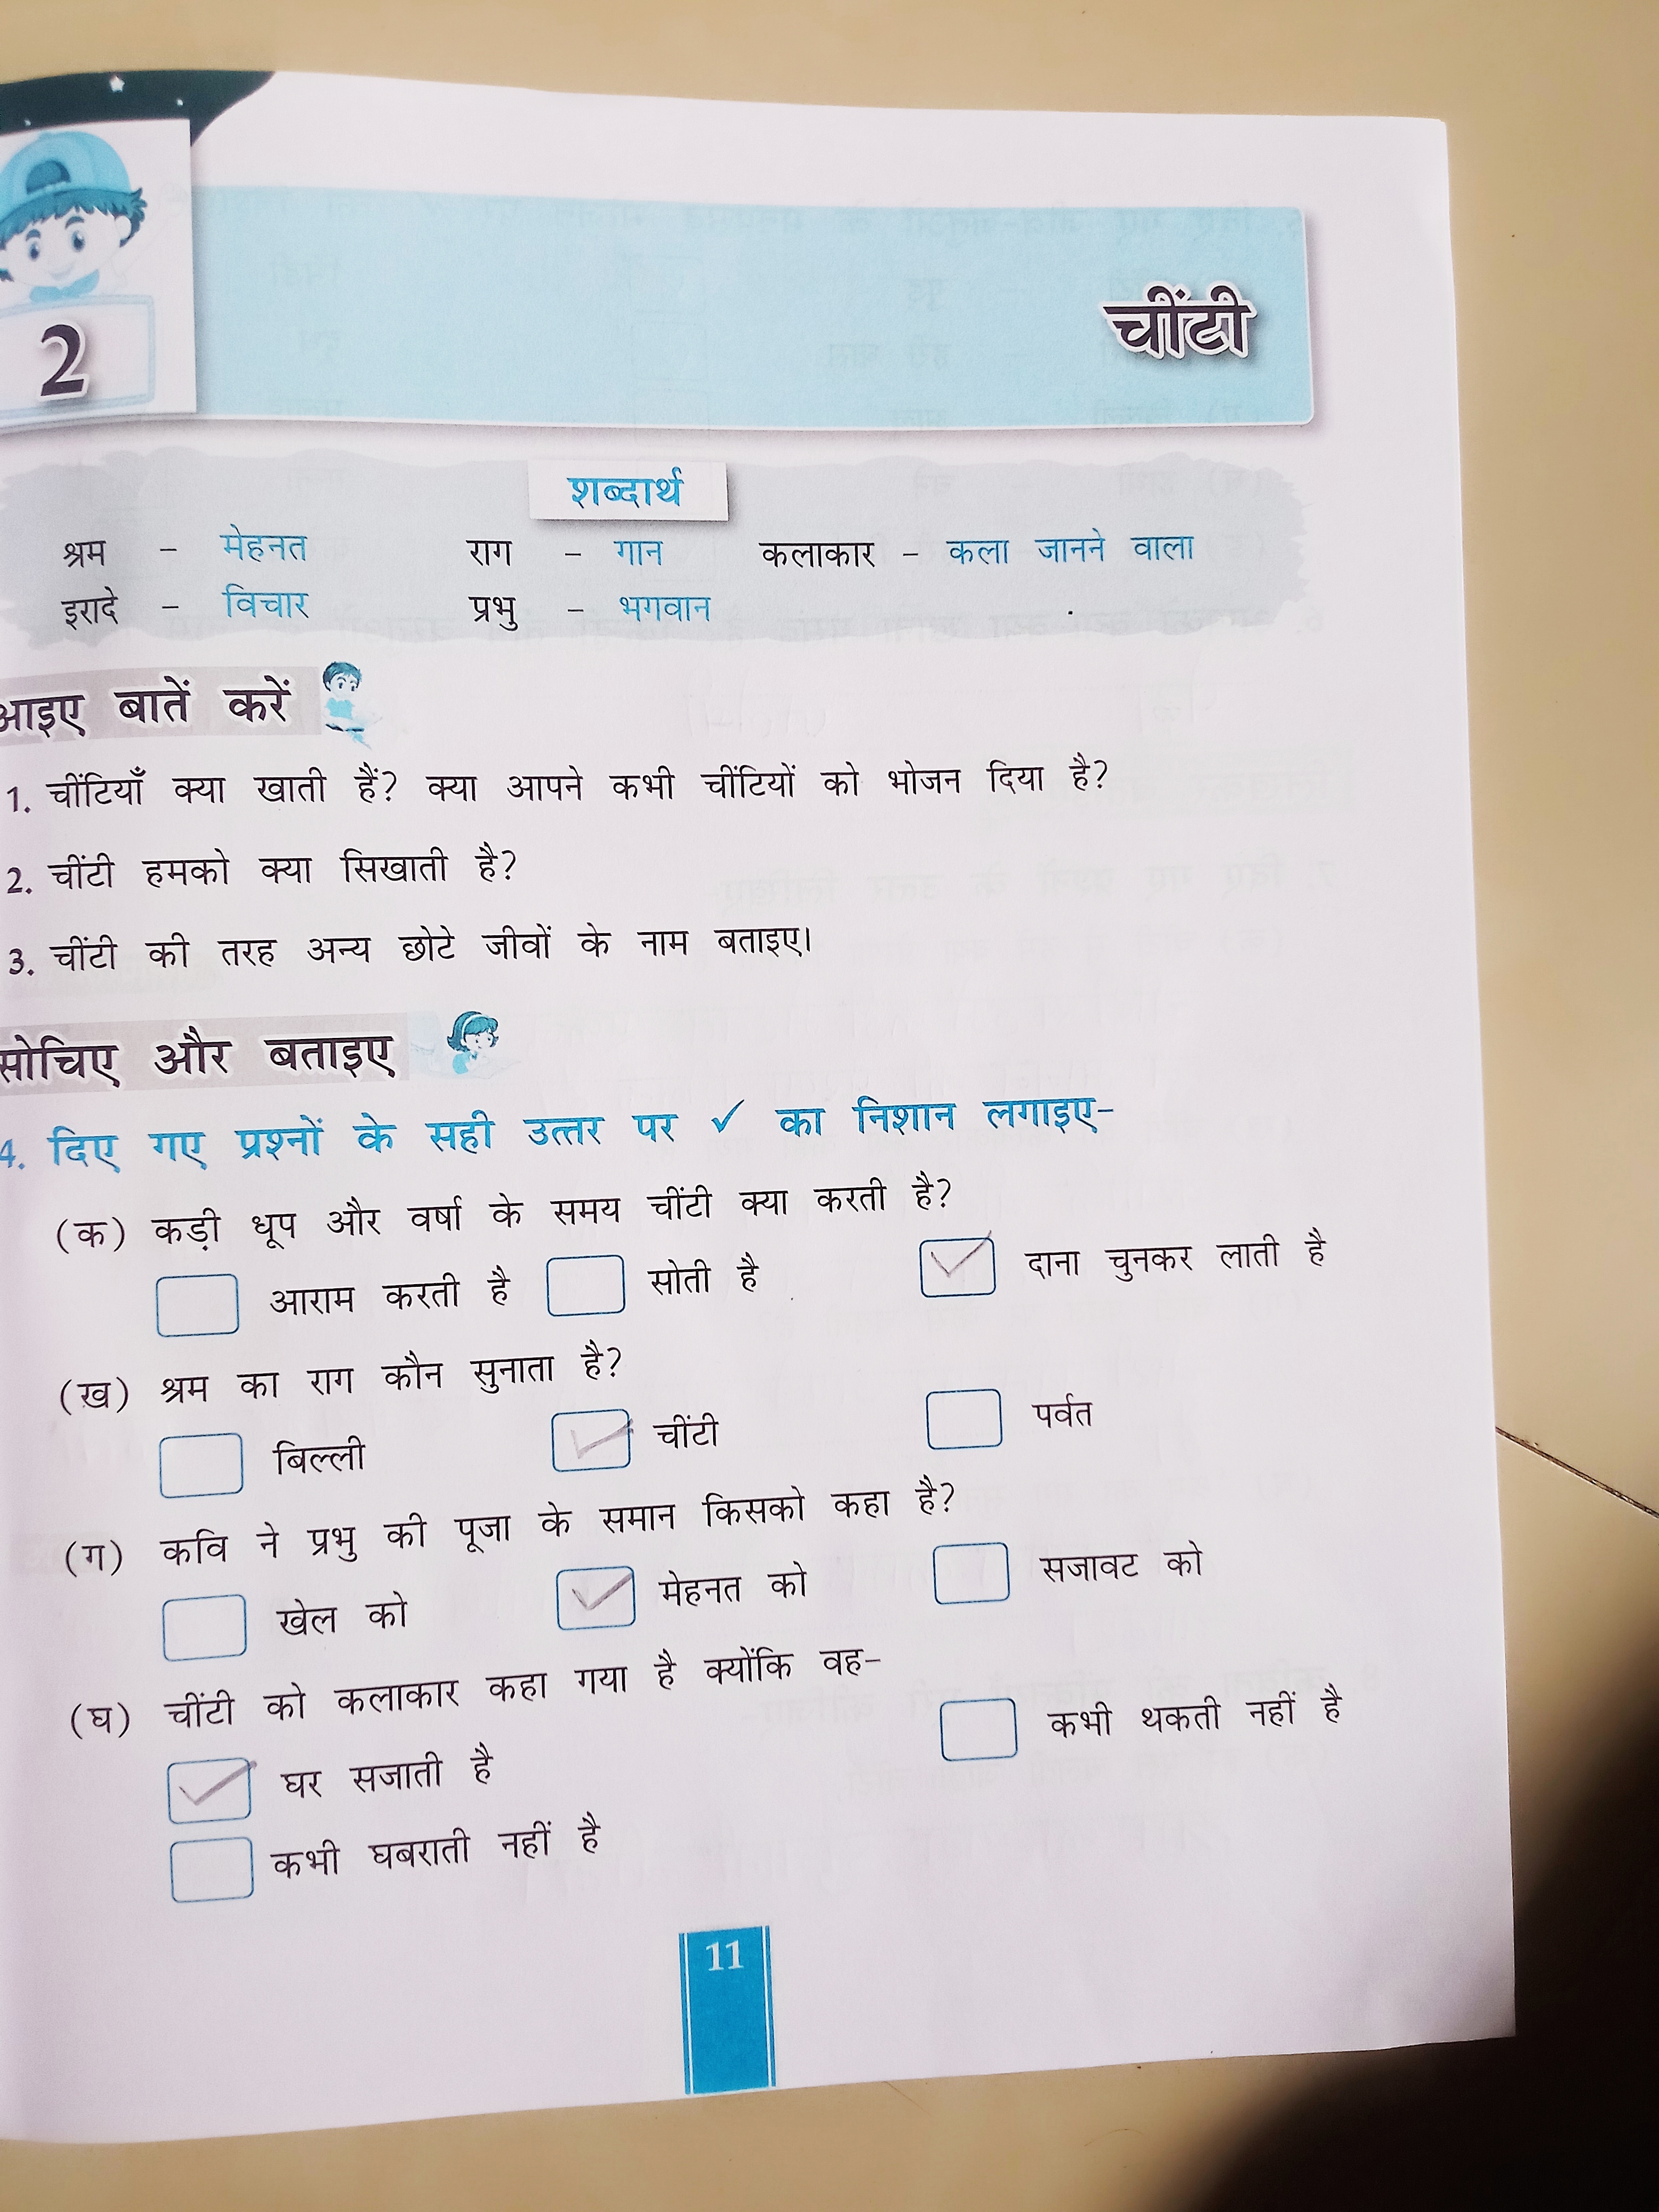 2
चींटी
शब्दार्थ
श्रम - मेहनत राग - गान कलाकार - कला जानने वाला
इरादे - विचार प्रभु - भगवान
आइए बातें करें
1. चींटियाँ क्या खाती हैं? क्या आपने कभी चींटियों को भोजन दिया है?
2. चींटी हमको क्या सिखाती है?
3. चींटी की तरह अन्य छोटे जीवों के नाम बताइए।
सोचिए और बताइए
4. दिए गए प्रश्नों के सही उत्तर पर ✓ का निशान लगाइए-
(क) कड़ी धूप और वर्षा के समय चींटी क्या करती है?
आराम करती है सोती है ✓ दाना चुनकर लाती है
(ख) श्रम का राग कौन सुनाता है?
बिल्ली ✓ चींटी पर्वत
(ग) कवि ने प्रभु की पूजा के समान किसको कहा है?
खेल को ✓ मेहनत को सजावट को
(घ) चींटी को कलाकार कहा गया है क्योंकि वह-
✓ घर सजाती है कभी थकती नहीं है
कभी घबराती नहीं है
11